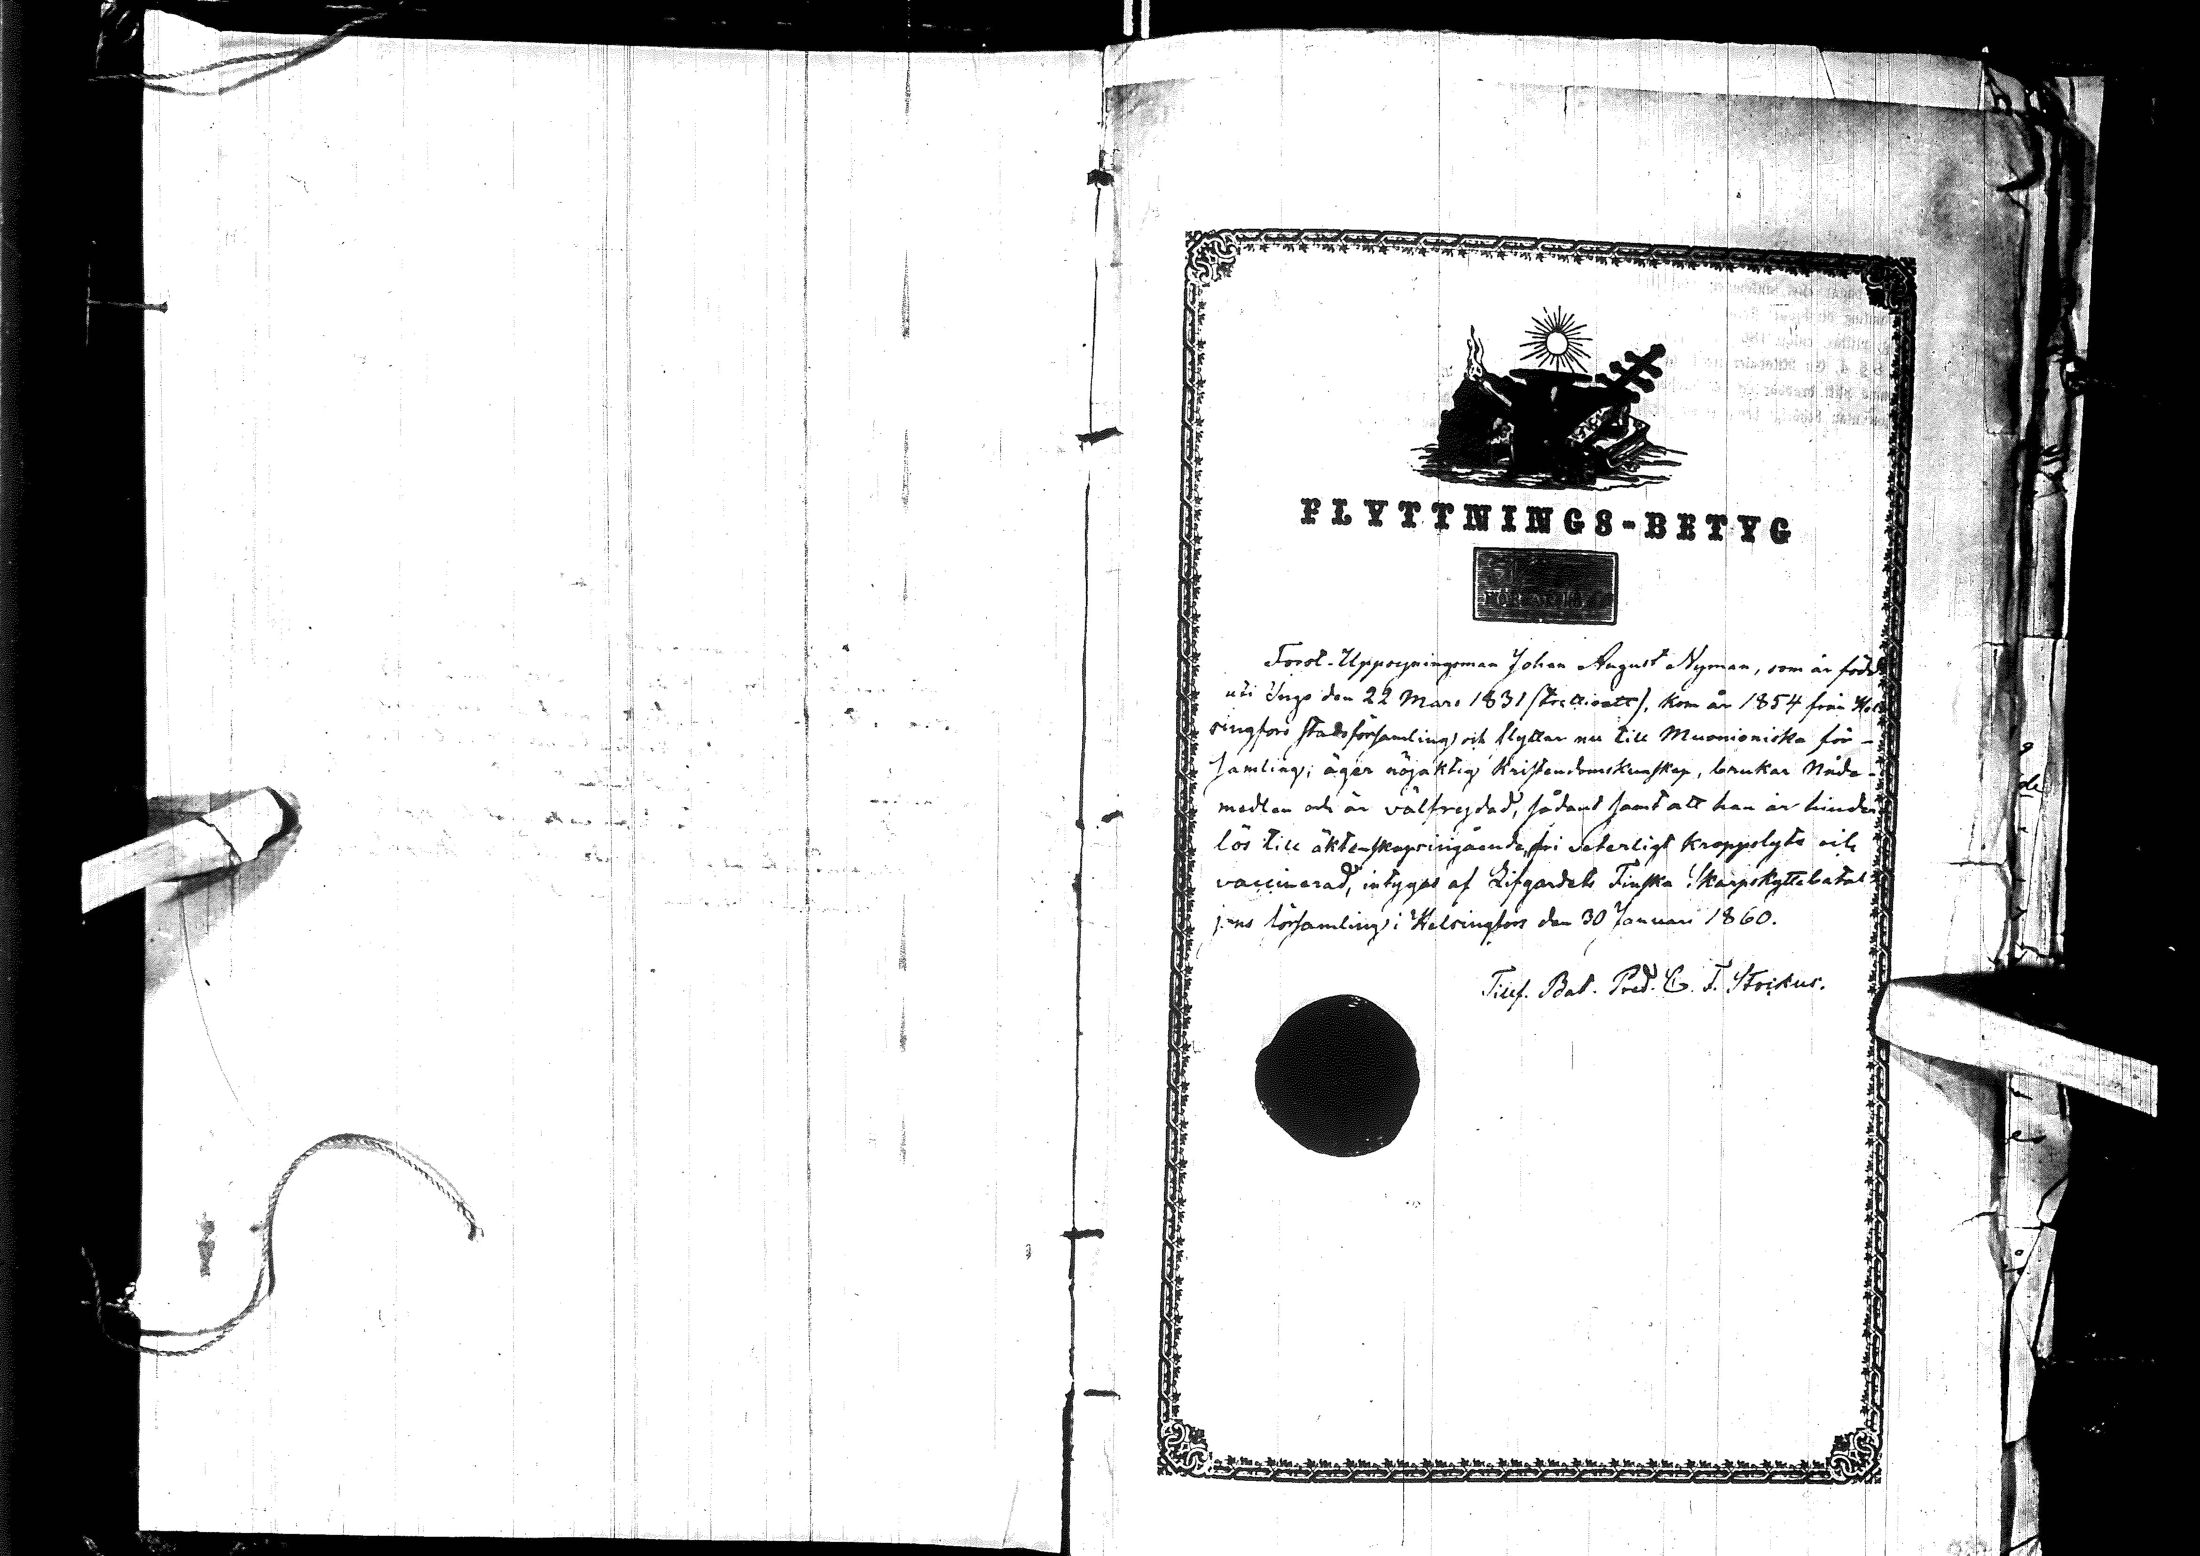 FLYTTNINGS-BETYG
Forst-Uppsyningsman Johan August Nyman, som är född
uti Ingo den 22 Mars 1831 (trettioett), kom år 1854 från Hel
singfors stadsförsamling och flyttar nu till Muonioniska för-
samling; äger nöjaktig Kristendomskunskap, brukar Nåde-
medlen och är välfreydad, sådant samt att han är hinder
lös till äktenskapsingående, fri veterligt kroppslyte och
vaccinerad, intygas af Lifgardets Finska Skarpskyttebatal
jons församling i Helsingfors den 30 Januari 1860.
Tillf. Bat. Pred. C. F.